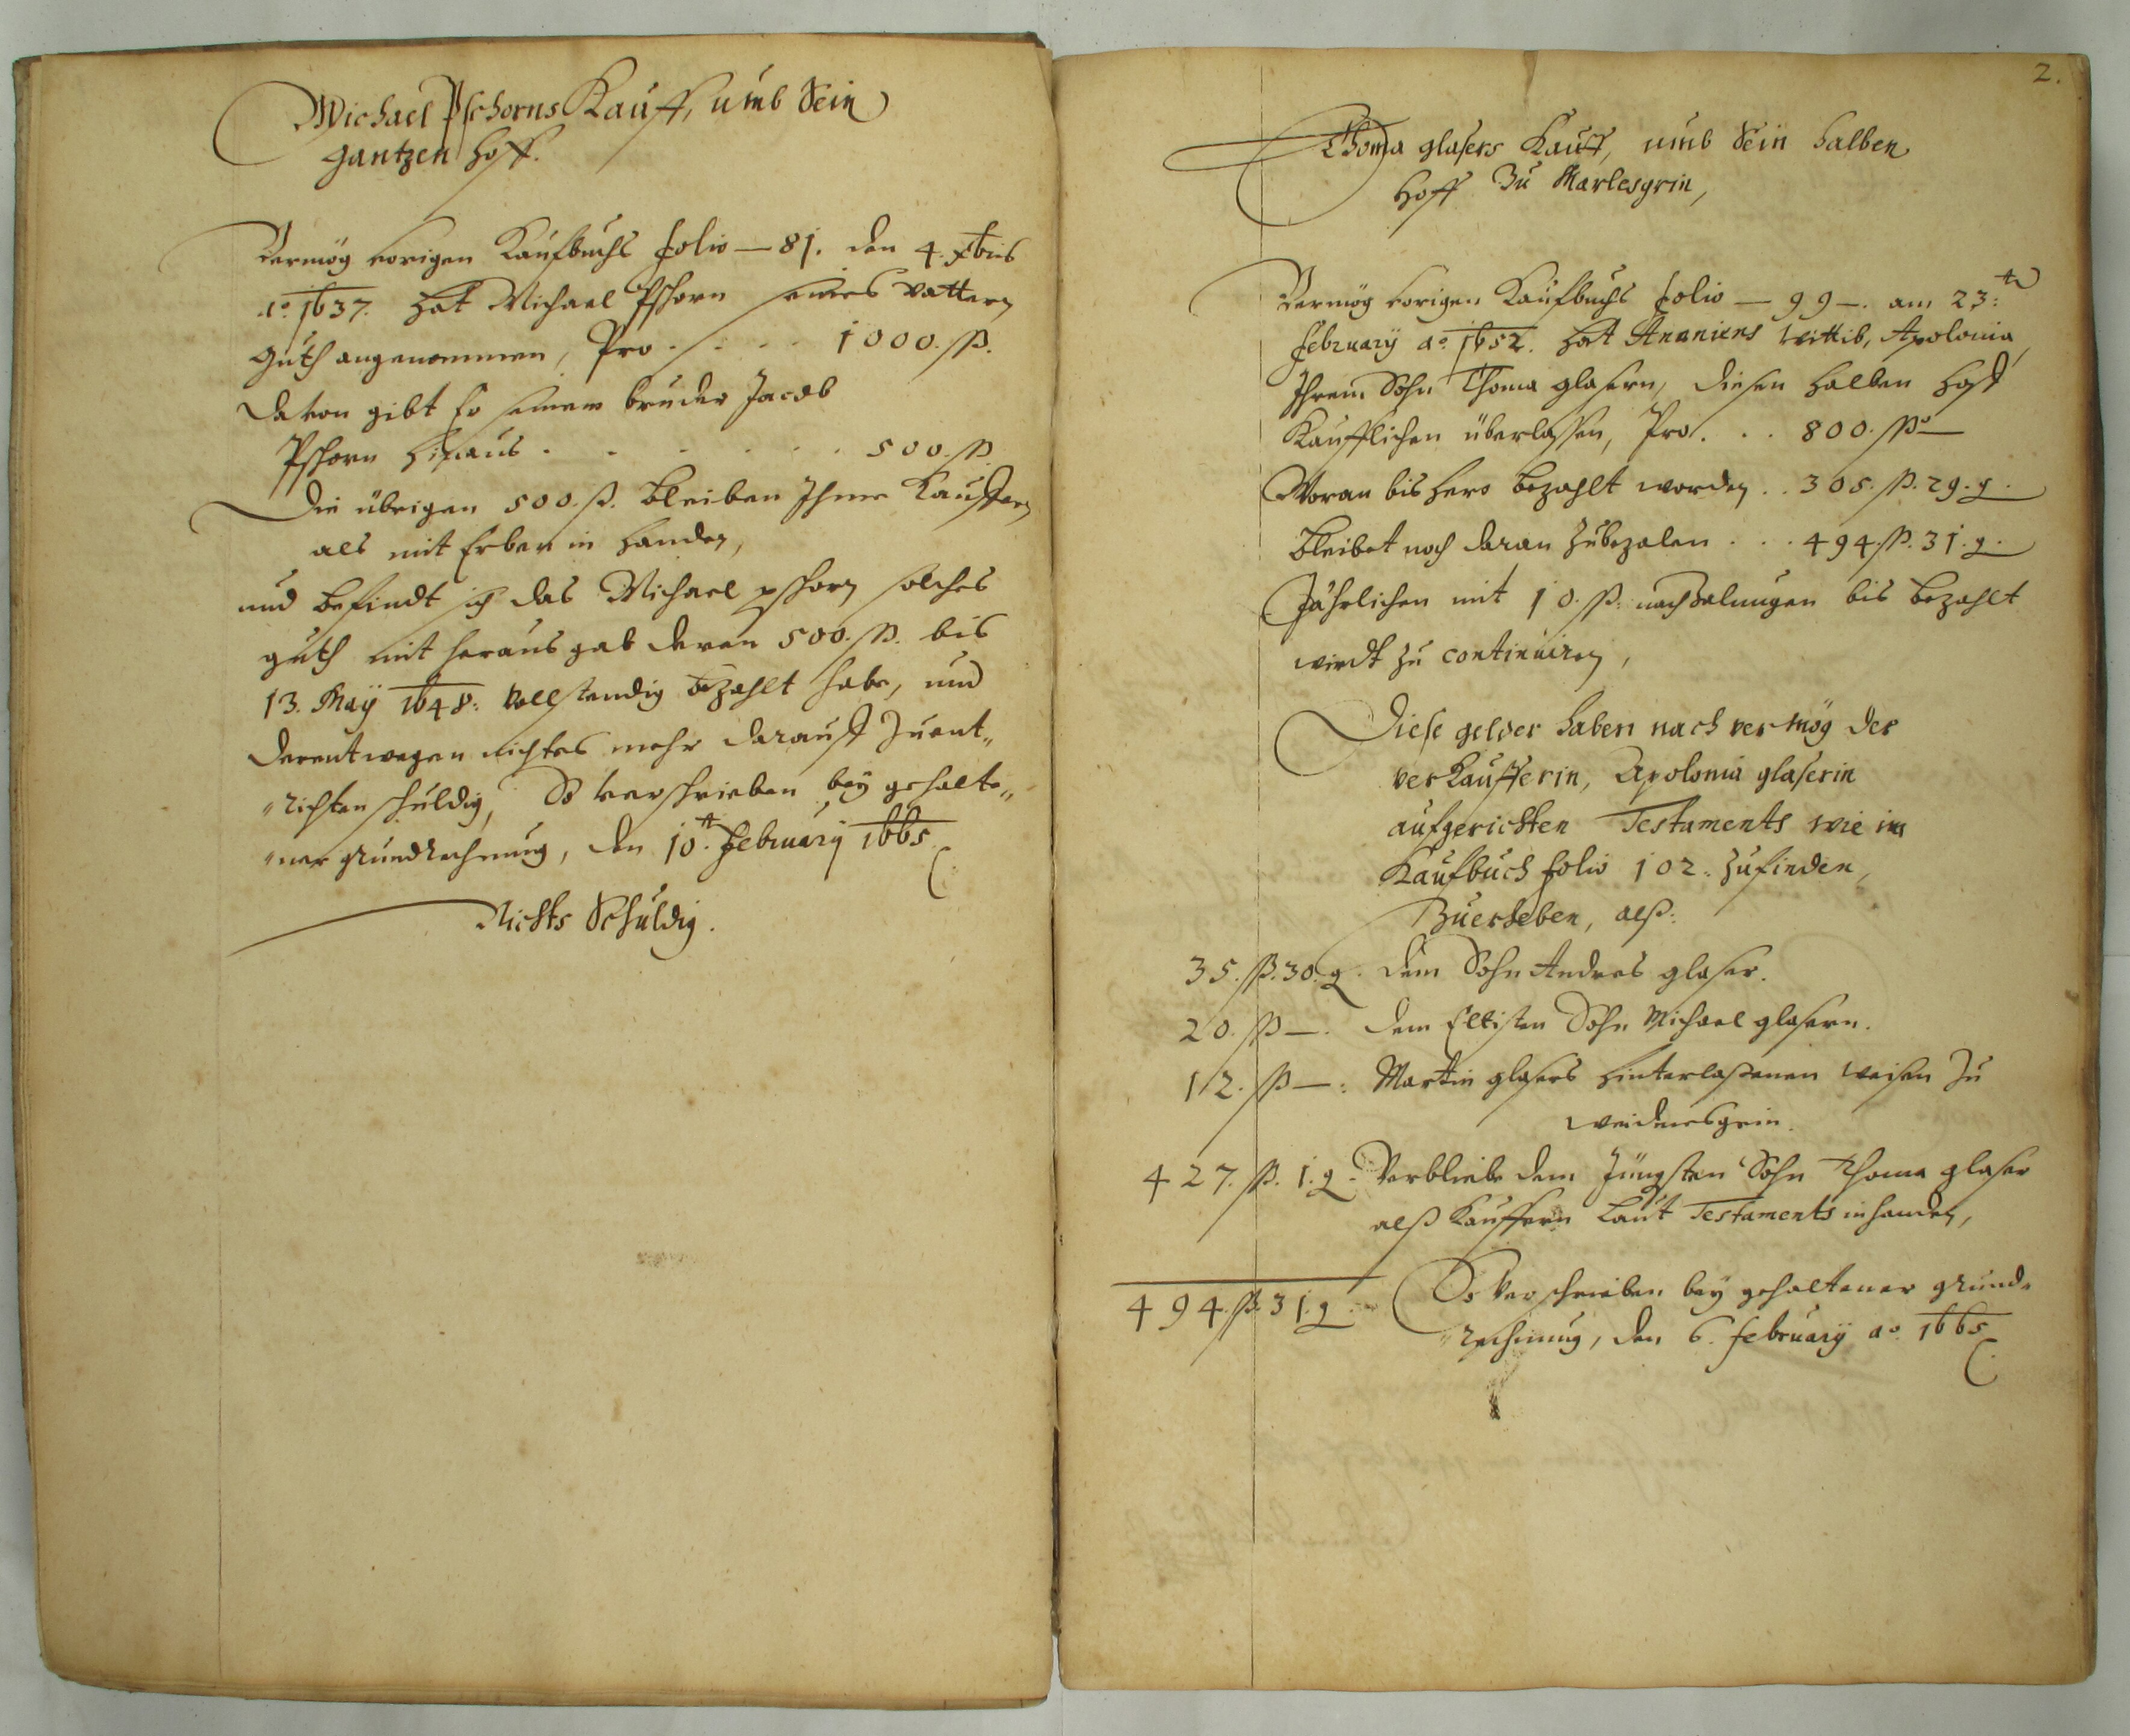 Michael Pschorns Kauff, umb Sein
gantzen Hoff.
Vermög vorigen Kaufbuchs folio — 81. den 4. Xbris
ao. 1637. hat Michael Pschorn seines Vattern
Guth angenommen, Pro . . . . 1000. ß.
davon gibt Er seinem bruder Jacob
Pschorn hinaus . . . . . . 500. ß.
Die übrigen 500. ß. bleiben Ihme Kauffern
als mit Erben in handen,
und befindt sich das Michael pschorn solches
guth mit herausgab deren 500. ß. bis
13. Maÿ 1648: vollstendig bezahlt habe, und
derentwegen nichtes mehr darauff zuent„
„richten schuldig, So verschrieben beÿ gehalte„
„ner grundrechnung, den 10.t Februarÿ 1665.
Nichts Schuldig.
2.
Thoma glasers Kauff, umb Sein halben
Hoff Zu Marlesgrin,
Vermög vorigen Kaufbuchs folio — 99 —. am 23:t
Februarÿ ao. 1652. hat Ananiens Wittib, Apolonia,
Ihrem Sohn Thoma glasern, diesen halben Hoff
Kaufflichen überlassen, Pro . . . 800. ß —
Woran bishero bezahlt worden . . 305. ß. 29. g.
bleibet noch daran zubezalen . . . 494. ß. 31. g.
Jährlichen mit 10. ß. nachzalungen bis bezahlt
wirdt zu continuiren,
Diese gelder haben nach vermög der
verKaufferin, Apolonia glaserin
aufgerichten Testaments wie im
Kaufbuch folio 102. Zufinden,
Zuerheben, alß:
35. ß. 30. g. dem Sohn Andres glaser.
20. ß —. dem Eltisten Sohn Michael glasern.
12. ß —: Martin glasers hinterlaßenen Weisen zu
weidmesgrin.
427. ß. 1. g. Verbliebe dem Jüngsten Sohn Thoma glaser
alß Kauffern Laut Testaments in handen,
494. ß. 31. g. So verschrieben beÿ gehaltener grund„
„rechnung, den 6. februarÿ ao. 1665